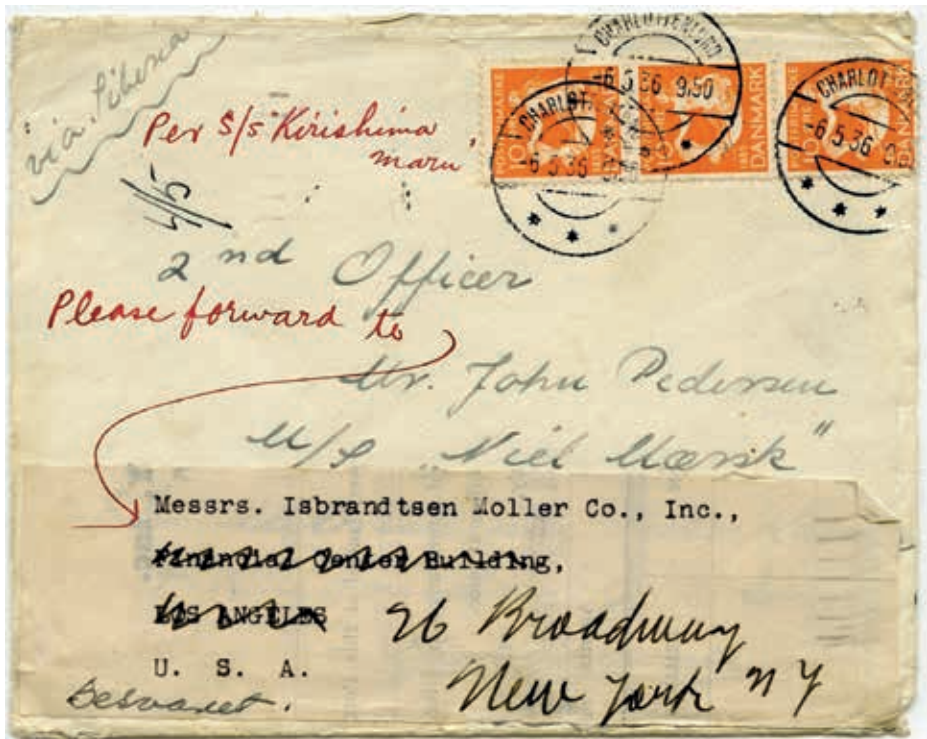 via Siberia
Per S/S "Kirishima
maru"
4/5
CHARLOTTENLUND
-6.5.36 9,50
CHARLOT
-6.5.36
CHARLOT
-6.5.36
10
DANMARK
DANMARK
2nd Officer
Please forward to
Mr. John Pedersen
M/S "Niel Mærsk"
Messrs. Isbrandtsen Moller Co., Inc.,
Financial Center Building,
LOS ANGELES
26 Broadway
U. S. A.
New York NY
Besvaret.